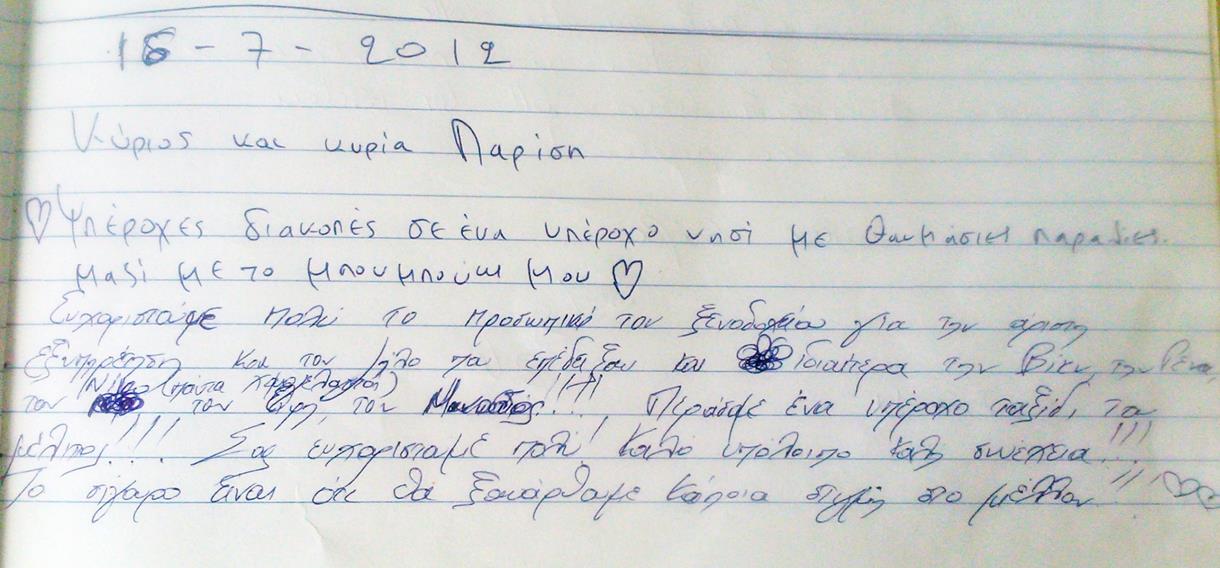 16 - 7 - 2012
Κύριος και κυρία Παρίση
♡ Υπέροχες διακοπές σε ένα υπέροχο νησί με θαυμάσιες παραλίες
μαζί με το μπουμπούκι μου ♡
Ευχαριστούμε πολύ το προσωπικό του ξενοδοχείου για την άριστη
εξυπηρέτηση και τον ζήλο που επέδειξαν και ιδιαίτερα την Βίκυ, την Ρένα,
Νίκο (πάντα χαμογελαστός)
τον τον τον Μανώλη!!!!! Περάσαμε ένα υπέροχο ταξίδι του
μέλιτος!!!! Σας ευχαριστούμε πολύ! Καλό υπόλοιπο καλή συνέχεια!!!
Το σίγουρο είναι ότι θα ξαναρθούμε κάποια στιγμή στο μέλλον!!! ♡♡